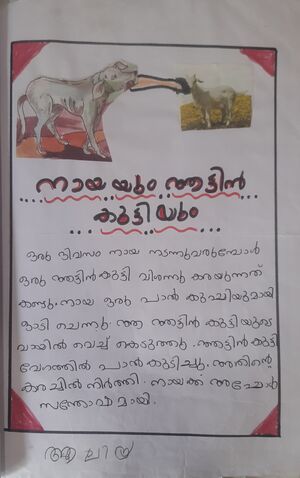 നായയും ആട്ടിൻ
കുട്ടിയും
ഒരു ദിവസം നായ നടന്നുവരുമ്പോൾ
ഒരു ആട്ടിൻകുട്ടി വിശന്നു കരയുന്നത്
കണ്ടു. നായ ഒരു പാൽ കുപ്പിയുമായി
ഓടി ചെന്നു. ആ ആട്ടിൻ കുട്ടിയുടെ
വായിൽ വെച്ച് കൊടുത്തു. ആട്ടിൻകുട്ടി
വേഗത്തിൽ പാൽകുടിച്ചു. അതിന്റെ
കരച്ചിൽ നിർത്തി. നായക്ക് അപ്പോൾ
സന്തോഷമായി.